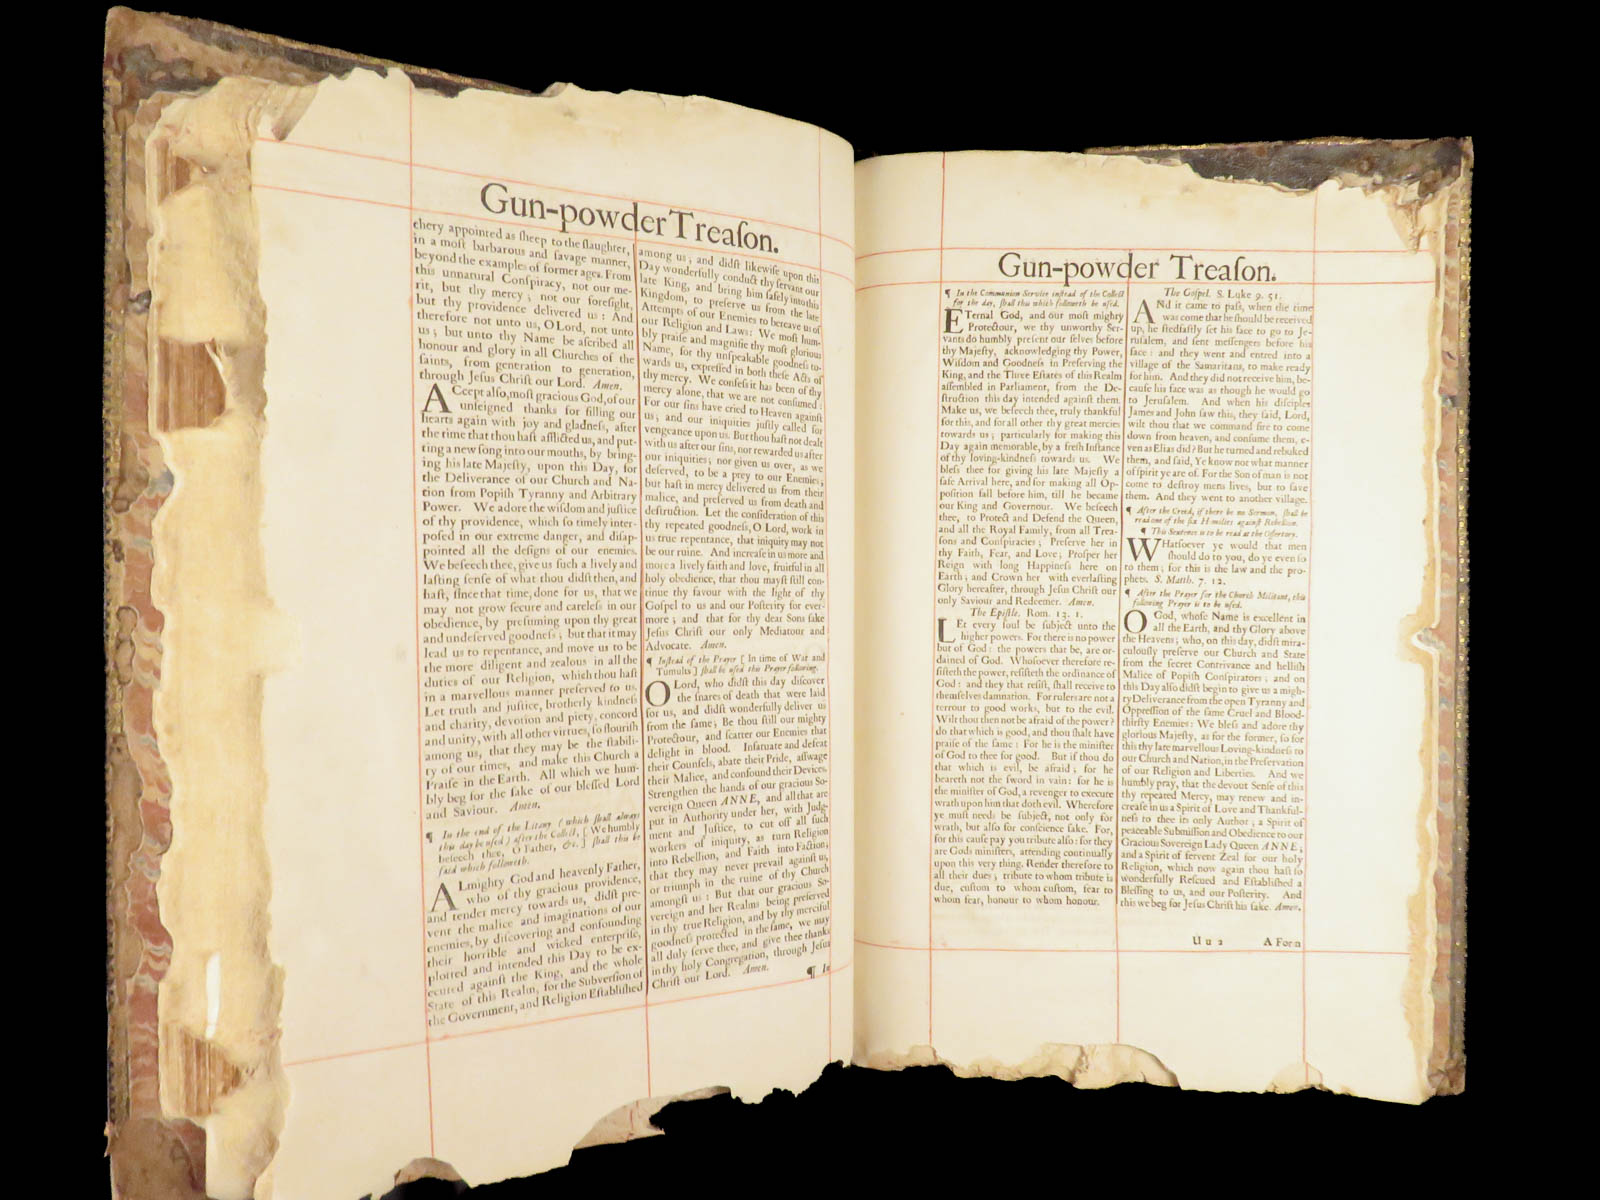 Gun-powder Treaſon.
chery appointed as ſheep to the ſlaughter,
in a moſt barbarous and ſavage manner,
beyond the examples of former ages. From
this unnatural Conſpiracy, not our me-
rit, but thy mercy; not our foreſight,
but thy providence delivered us: And
therefore not unto us, O Lord, not unto
us; but unto thy Name be aſcribed all
honour and glory in all Churches of the
ſaints, from generation to generation,
through Jeſus Chriſt our Lord. Amen.
ACcept alſo, moſt gracious God, of our
unfeigned thanks for filling our
hearts again with joy and gladneſs, after
the time that thou haſt afflicted us, and put-
ting a new ſong into our mouths, by bring-
ing his late Majeſty, upon this Day, for
the Deliverance of our Church and Na-
tion from Popiſh Tyranny and Arbitrary
Power. We adore the wiſdom and juſtice
of thy providence, which ſo timely inter-
poſed in our extreme danger, and diſap-
pointed all the deſigns of our enemies.
We beſeech thee, give us ſuch a lively and
laſting ſenſe of what thou didſt then, and
haſt, ſince that time, done for us, that we
may not grow ſecure and careleſs in our
obedience, by preſuming upon thy great
and undeſerved goodneſs; but that it may
lead us to repentance, and move us to be
the more diligent and zealous in all the
duties of our Religion, which thou haſt
in a marvellous manner preſerved to us.
Let truth and juſtice, brotherly kindneſs
and charity, devotion and piety, concord
and unity, with all other virtues, ſo flouriſh
among us, that they may be the ſtabili-
ty of our times, and make this Church a
Praiſe in the Earth. All which we hum-
bly beg for the ſake of our bleſſed Lord
and Saviour. Amen.
¶ In the end of the Litany (which ſhall always
this day be uſed) after the Collect, [We humbly
beſeech thee, O Father, &c.] ſhall this be
ſaid which followeth.
ALmighty God and heavenly Father,
who of thy gracious providence,
and tender mercy towards us, didſt pre-
vent the malice and imaginations of our
enemies, by diſcovering and confounding
their horrible and wicked enterpriſe,
plotted and intended this Day to be ex-
ecuted againſt the King, and the whole
State of this Realm, for the Subverſion of
the Government, and Religion Eſtabliſhed
among us; and didſt likewiſe upon this
Day wonderfully conduct thy ſervant our
late King, and bring him ſafely into this
Kingdom, to preſerve us from the late
Attempts of our Enemies to bereave us of
our Religion and Laws: We moſt hum-
bly praiſe and magnifie thy moſt glorious
Name, for thy unſpeakable goodneſs to-
wards us, expreſſed in both theſe Acts of
thy mercy. We confeſs it has been of thy
mercy alone, that we are not conſumed:
For our ſins have cried to Heaven againſt
us; and our iniquities juſtly called for
vengeance upon us. But thou haſt not dealt
with us after our ſins, nor rewarded us after
our iniquities; nor given us over, as we
deſerved, to be a prey to our Enemies;
but haſt in mercy delivered us from their
malice, and preſerved us from death and
deſtruction. Let the conſideration of this
thy repeated goodneſs, O Lord, work in
us true repentance, that iniquity may not
be our ruine. And increaſe in us more and
more a lively faith and love, fruitful in all
holy obedience, that thou mayſt ſtill con-
tinue thy favour with the light of thy
Goſpel to us and our Poſterity for ever-
more; and that for thy dear Sons ſake
Jeſus Chriſt our only Mediatour and
Advocate. Amen.
¶ Inſtead of the Prayer [In time of War and
Tumults] ſhall be uſed this Prayer following.
O Lord, who didſt this day diſcover
the ſnares of death that were laid
for us, and didſt wonderfully deliver us
from the ſame; Be thou ſtill our mighty
Protectour, and ſcatter our Enemies that
delight in blood. Infatuate and defeat
their Counſels, abate their Pride, aſſwage
their Malice, and confound their Devices.
Strengthen the hands of our gracious So-
vereign Queen ANNE, and all that are
put in Authority under her, with Judg-
ment and Juſtice, to cut off all ſuch
workers of iniquity, as turn Religion
into Rebellion, and Faith into Faction;
that they may never prevail againſt us,
or triumph in the ruine of thy Church
amongſt us: But that our gracious So-
vereign and her Realms being preſerved
in thy true Religion, and by thy merciful
goodneſs protected in the ſame, we may
all duly ſerve thee, and give thee thanks
in thy holy Congregation, through Jeſus
Chriſt our Lord. Amen.
¶ In
Gun-powder Treaſon.
¶ In the Communion Service inſtead of the Collect
for the day, ſhall this which followeth be uſed.
ETernal God, and our moſt mighty
Protectour, we thy unworthy Ser-
vants do humbly preſent our ſelves before
thy Majeſty, acknowledging thy Power,
Wiſdom and Goodneſs in Preſerving the
King, and the Three Eſtates of this Realm
aſſembled in Parliament, from the De-
ſtruction this day intended againſt them.
Make us, we beſeech thee, truly thankful
for this, and for all other thy great mercies
towards us; particularly for making this
Day again memorable, by a freſh Inſtance
of thy loving-kindneſs towards us. We
bleſs thee for giving his late Majeſty a
ſafe Arrival here, and for making all Op-
poſition fall before him, till he became
our King and Governour. We beſeech
thee, to Protect and Defend the Queen,
and all the Royal Family, from all Trea-
ſons and Conſpiracies; Preſerve her in
thy Faith, Fear, and Love; Proſper her
Reign with long Happineſs here on
Earth; and Crown her with everlaſting
Glory hereafter, through Jeſus Chriſt our
only Saviour and Redeemer. Amen.
The Epiſtle. Rom. 13. 1.
LEt every ſoul be ſubject unto the
higher powers. For there is no power
but of God: the powers that be, are or-
dained of God. Whoſoever therefore re-
ſiſteth the power, reſiſteth the ordinance of
God: and they that reſiſt, ſhall receive to
themſelves damnation. For rulers are not a
terrour to good works, but to the evil.
Wilt thou then not be afraid of the power?
do that which is good, and thou ſhalt have
praiſe of the ſame: For he is the miniſter
of God to thee for good. But if thou do
that which is evil, be afraid; for he
beareth not the ſword in vain: for he is
the miniſter of God, a revenger to execute
wrath upon him that doth evil. Wherefore
ye muſt needs be ſubject, not only for
wrath, but alſo for conſcience ſake. For,
for this cauſe pay you tribute alſo: for they
are Gods miniſters, attending continually
upon this very thing. Render therefore to
all their dues; tribute to whom tribute is
due, cuſtom to whom cuſtom, fear to
whom fear, honour to whom honour.
The Goſpel. S. Luke 9. 51.
ANd it came to paſs, when the time
was come that he ſhould be received
up, he ſtedfaſtly ſet his face to go to Je-
ruſalem, and ſent meſſengers before his
face: and they went and entred into a
village of the Samaritans, to make ready
for him. And they did not receive him, be-
cauſe his face was as though he would go
to Jeruſalem. And when his diſciples
James and John ſaw this, they ſaid, Lord,
wilt thou that we command fire to come
down from heaven, and conſume them, e-
ven as Elias did? But he turned and rebuked
them, and ſaid, Ye know not what manner
of ſpirit ye are of. For the Son of man is not
come to deſtroy mens lives, but to ſave
them. And they went to another village.
¶ After the Creed, if there be no Sermon, ſhall be
read one of the ſix Homilies againſt Rebellion.
¶ This Sentence is to be read at the Offertory.
WHatſoever ye would that men
ſhould do to you, do ye even ſo
to them; for this is the law and the pro-
phets. S. Matth. 7. 12.
¶ After the Prayer for the Church Militant, this
following Prayer is to be uſed.
O God, whoſe Name is excellent in
all the Earth, and thy Glory above
the Heavens; who, on this day, didſt mira-
culouſly preſerve our Church and State
from the ſecret Contrivance and helliſh
Malice of Popiſh Conſpirators; and on
this Day alſo didſt begin to give us a migh-
ty Deliverance from the open Tyranny and
Oppreſſion of the ſame Cruel and Blood-
thirſty Enemies: We bleſs and adore thy
glorious Majeſty, as for the former, ſo for
this thy late marvellous Loving-kindneſs to
our Church and Nation, in the Preſervation
of our Religion and Liberties. And we
humbly pray, that the devout Senſe of this
thy repeated Mercy, may renew and in-
creaſe in us a Spirit of Love and Thankful-
neſs to thee its only Author; a Spirit of
peaceable Submiſſion and Obedience to our
Gracious Sovereign Lady Queen ANNE;
and a Spirit of fervent Zeal for our holy
Religion, which now again thou haſt ſo
wonderfully Reſcued and Eſtabliſhed a
Bleſſing to us, and our Poſterity. And
this we beg for Jeſus Chriſt his ſake. Amen.
Uu 2
A Form